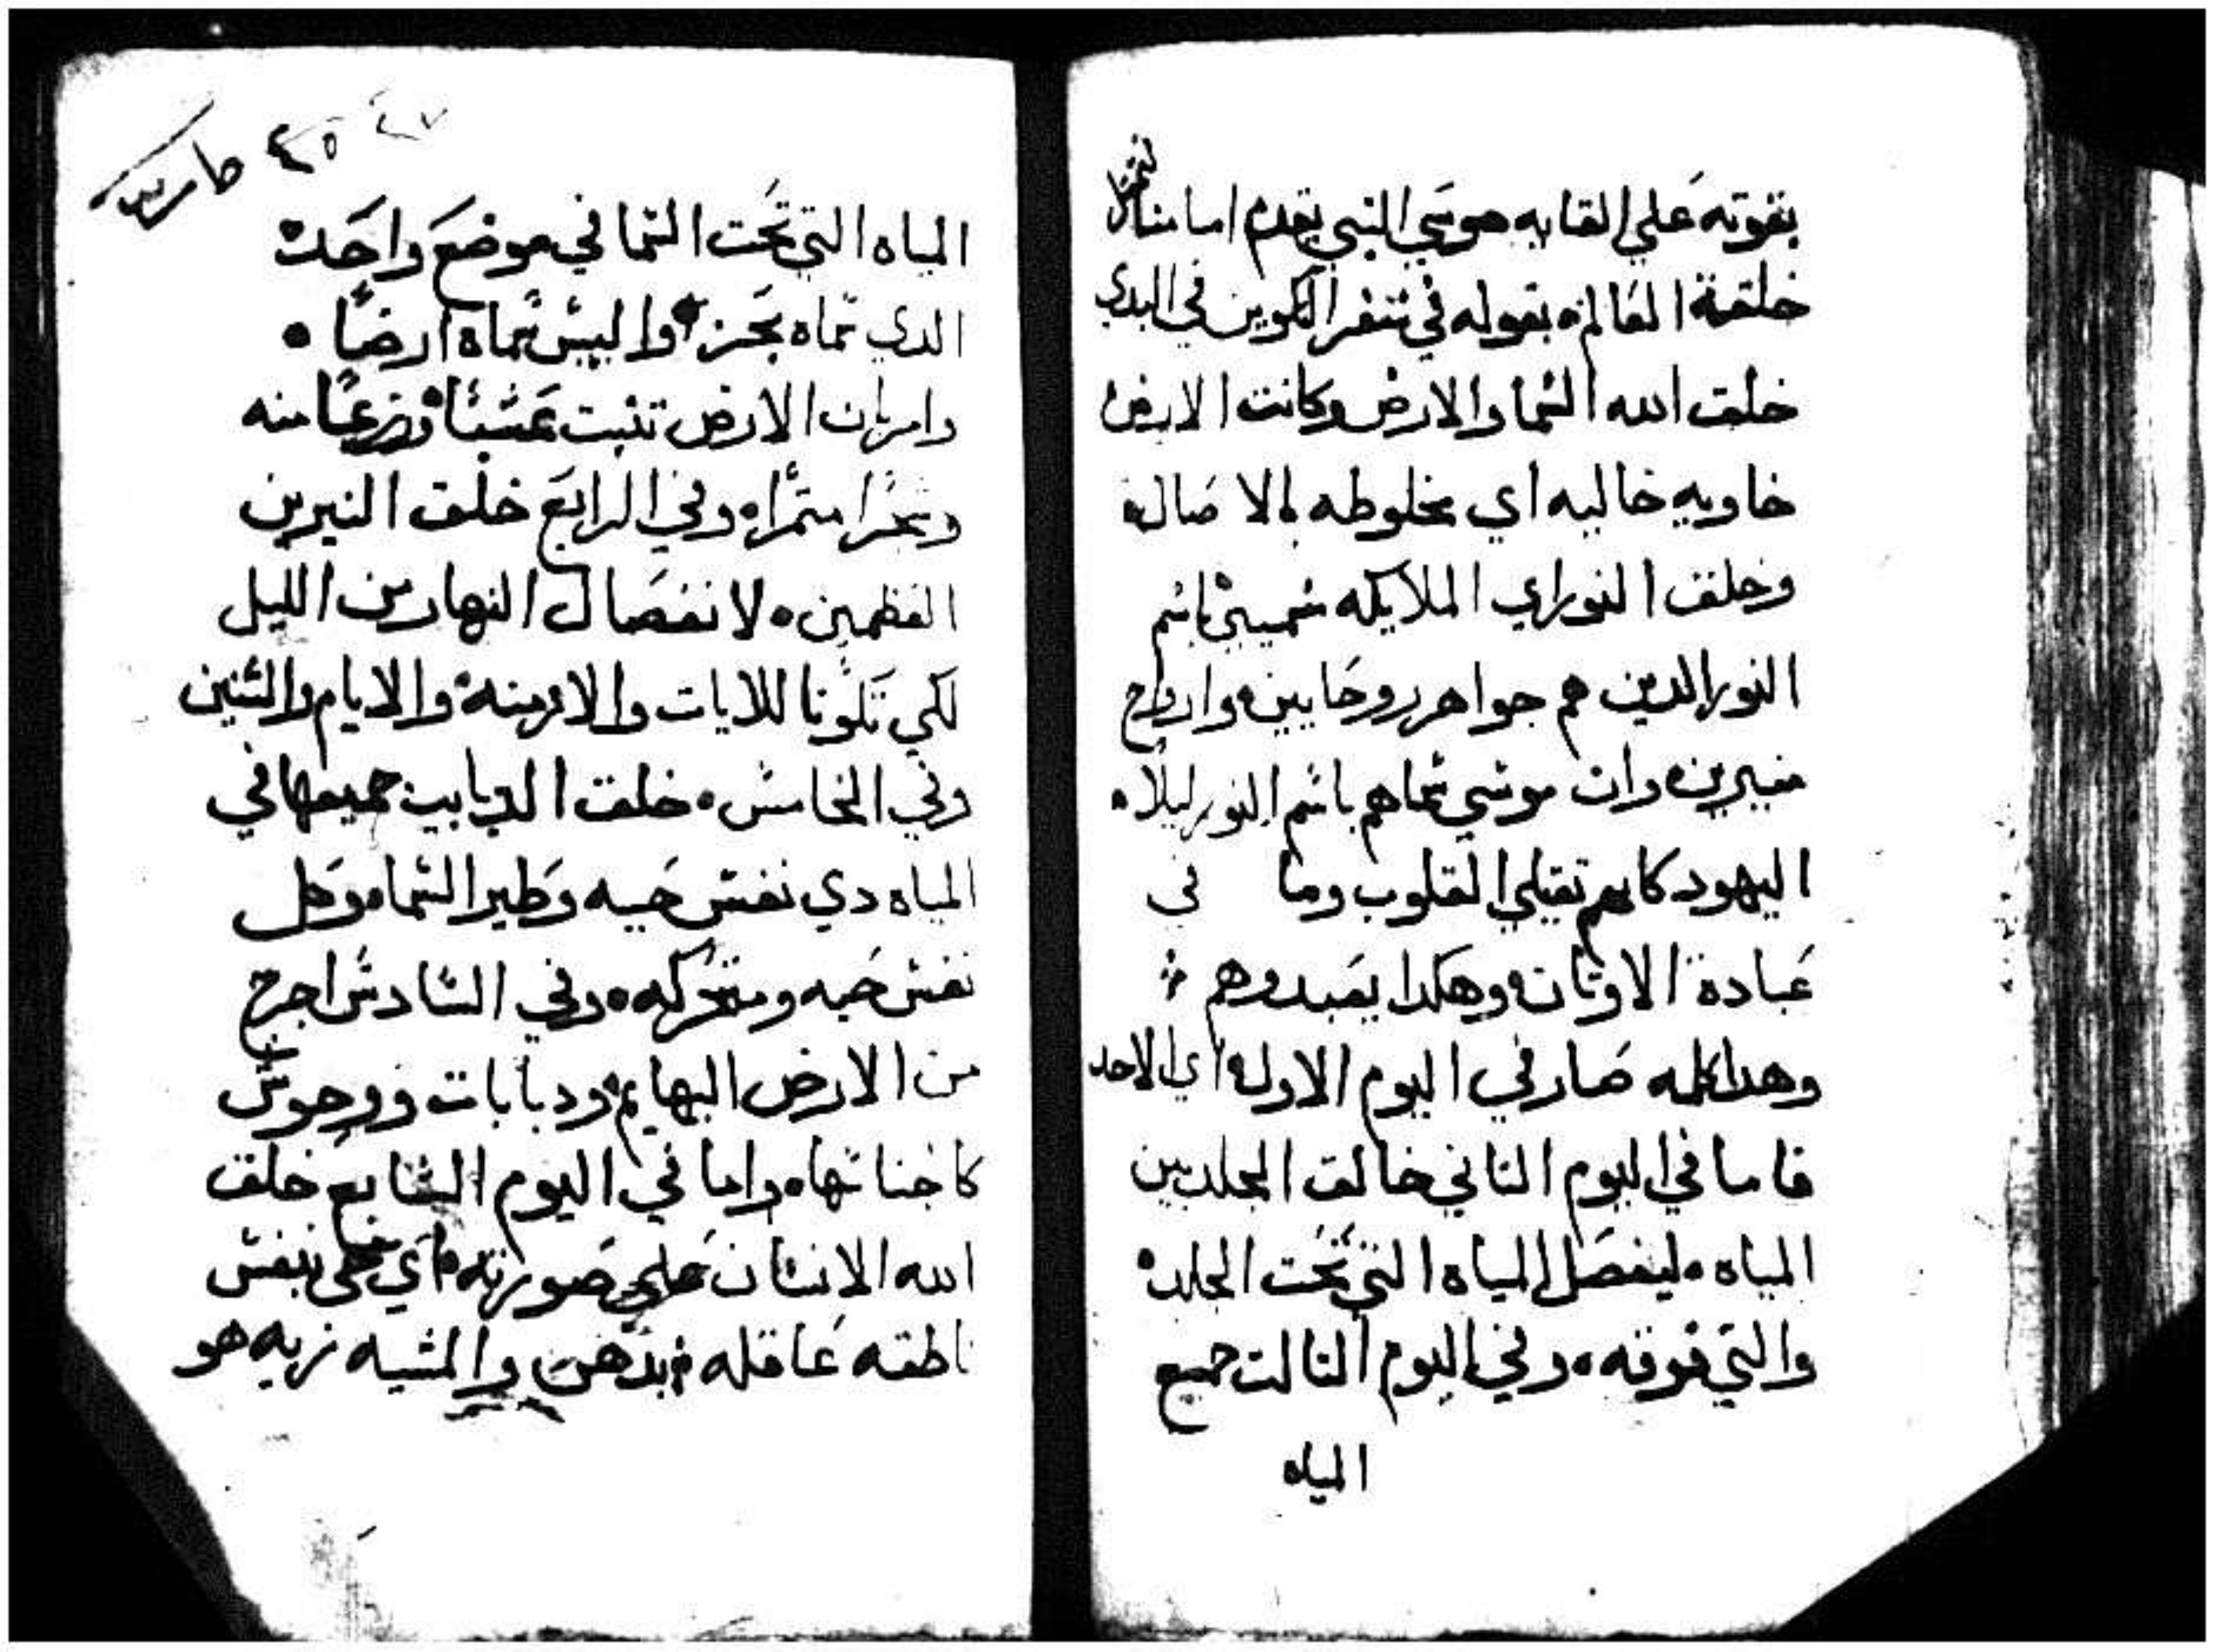 بقوته علي القايه موسي النبي يقدم امامنا
خلقة العالم بقوله في سفر التكوين في البدي
خلق الله السما والارض وكانت الارض
خاويه خاليه اي مخلوطه بالاصاله
وخلق النور اي الملايكه سميين باسم
النور الدين هم جواهر روحايين وارواح
منيرين وان موسي سماهم باسم النور ليلا
اليهود كانهم تقيلي القلوب وما في
عبادة الاوتان وهكدا يعبدوهم
وهدا كله صار في اليوم الاول اي الاحد
فاما في اليوم التاني خالق الجلد بين
المياه ليفصل المياه التي تحت الجلد
والتي فوقه وفي اليوم التالت جميع
المياه
٤٥ مارس
المياه التي تحت السما في موضع واحد
الدي سماه بحر واليبس سماه ارضا
وامر بان الارض تنبت عشبا وزرعا منه
وشجرا متمرا وفي الرابع خلق النيرين
العظمين لانفصال النهار من الليل
لكي تكونا للايات والازمنة والايام والسنين
وفي الخامس خلق الدبابيب جميعها في
المياه دي نفس حيه وطير السما وكل
نفس حيه ومتحركه وفي السادس اخرج
من الارض البهايم ودبابات ووحوش
كاجناسها واما في اليوم السابع خلق
الله الانسان علي صورته اي خلق بنفس
ناطقه عاقله بدهن والمشيه زيه هو